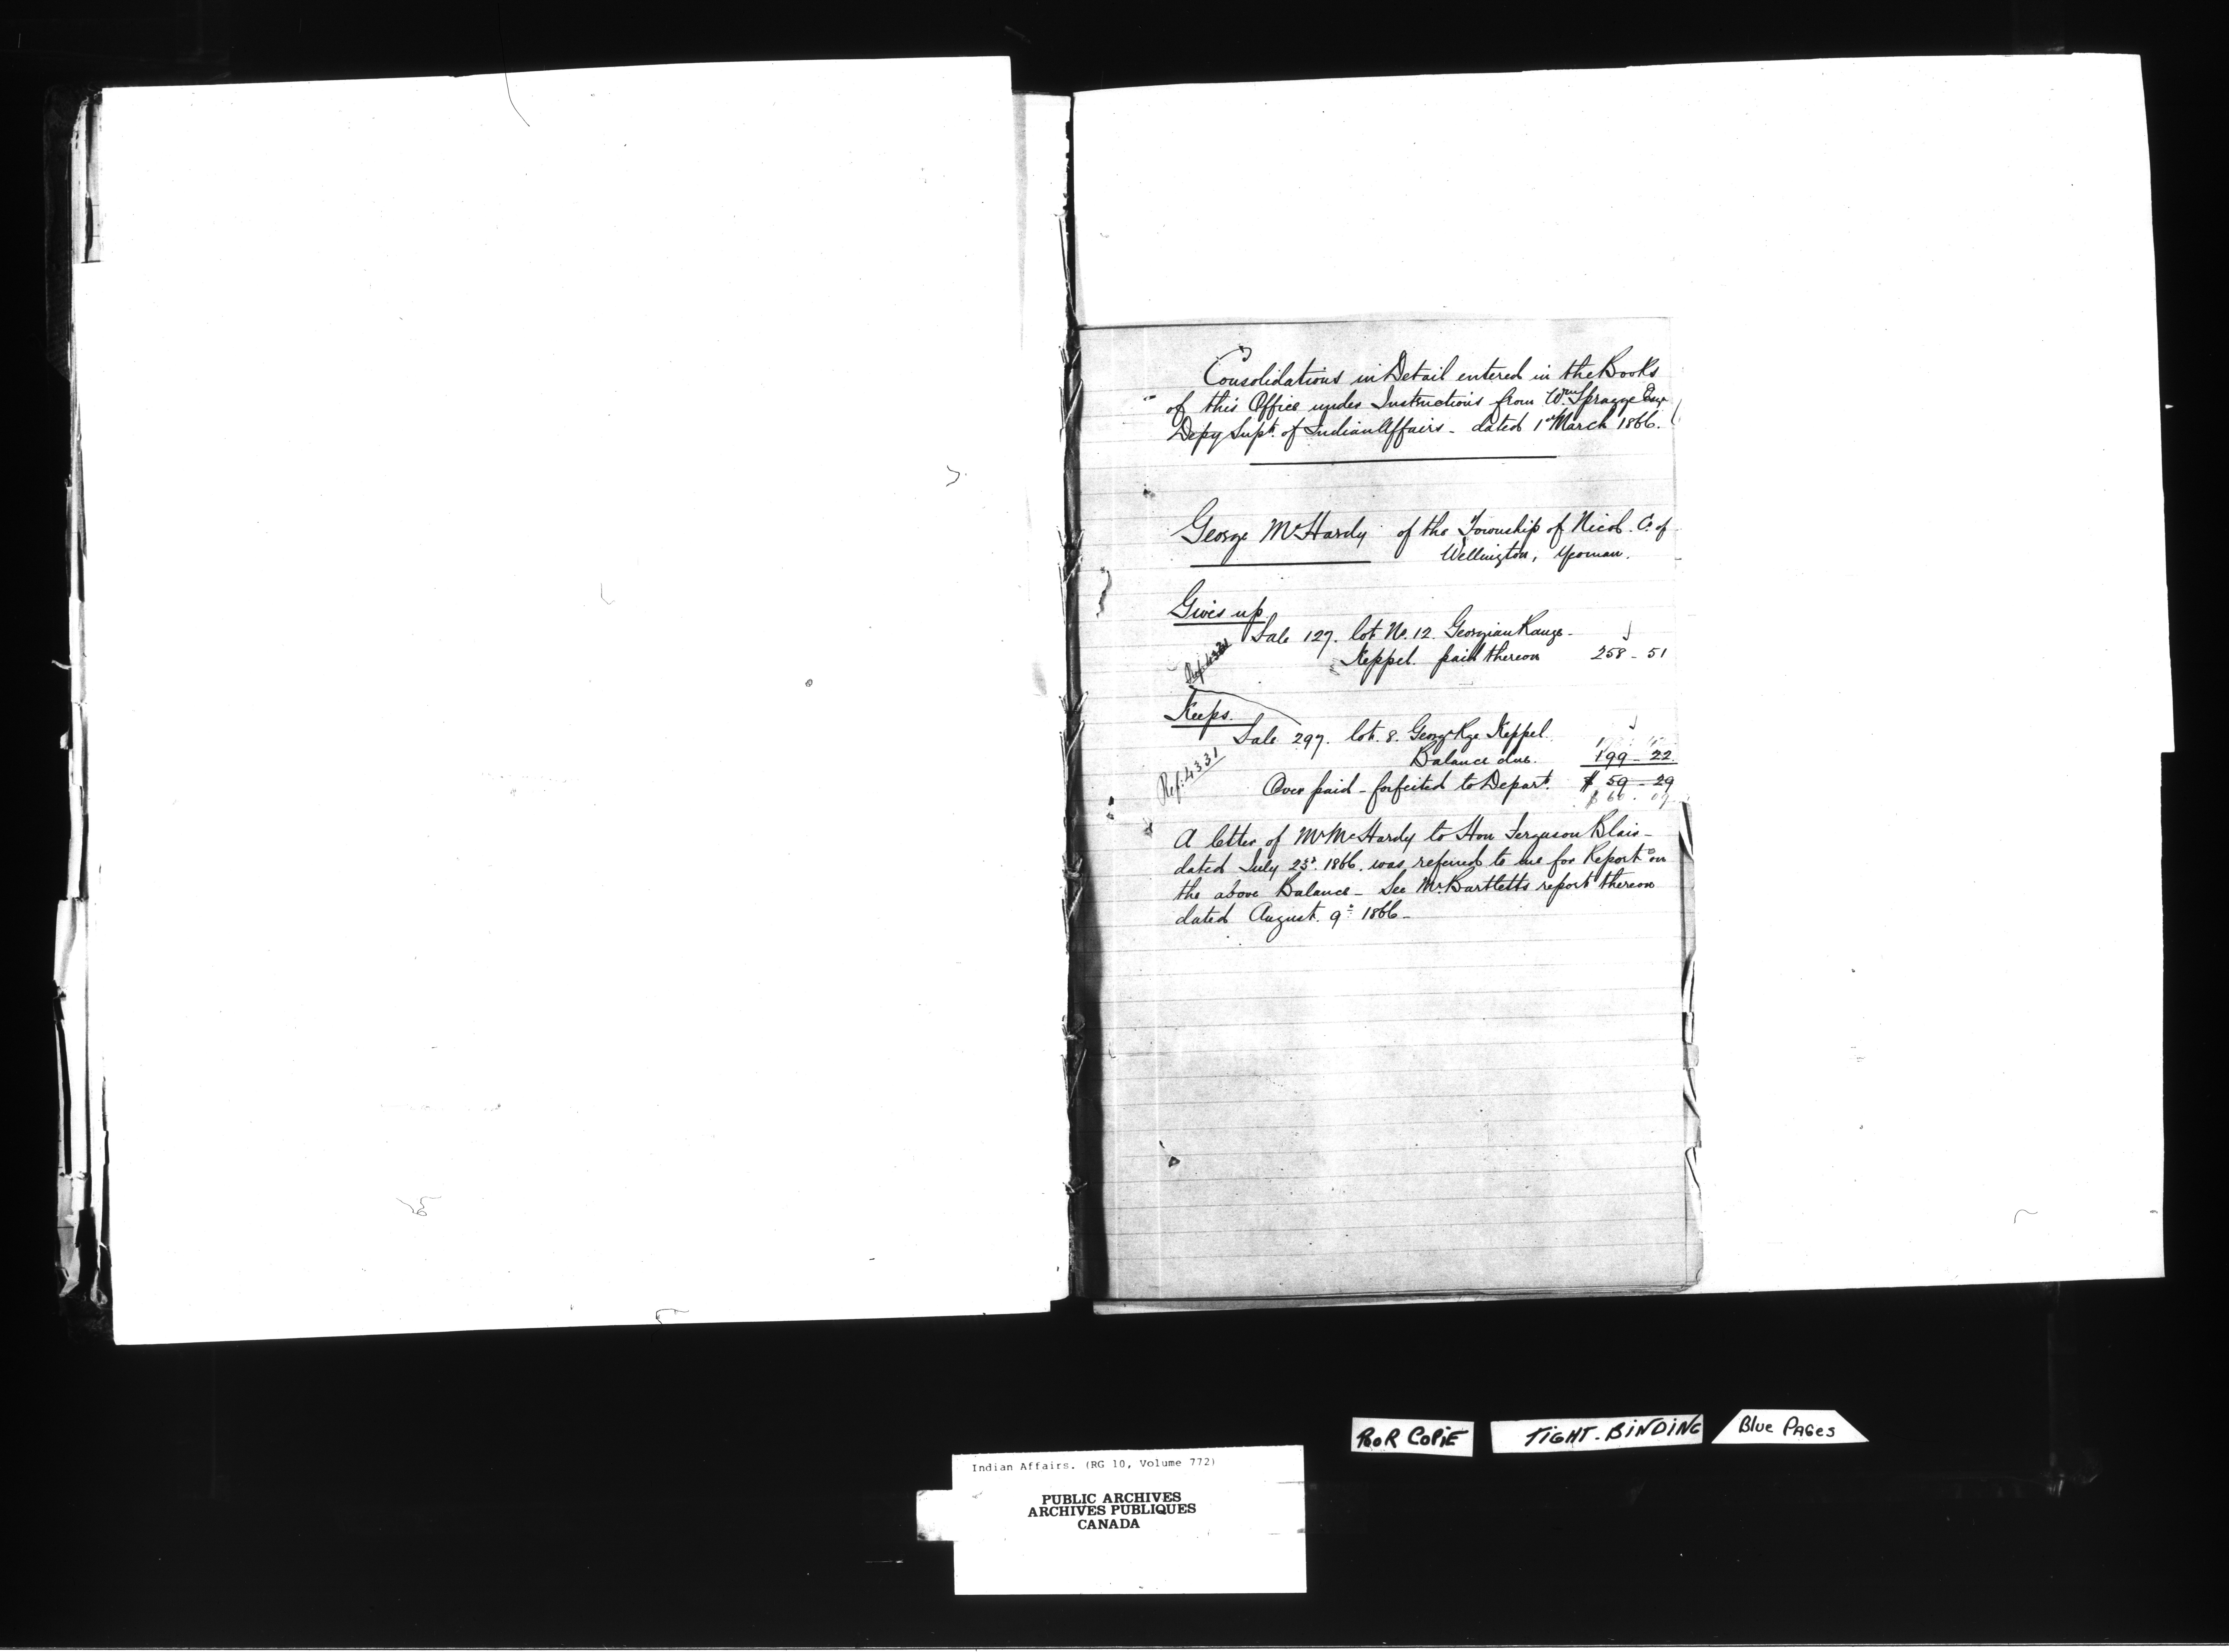 Consolidations in Detail entered in the Books
of this Office under Instructions from Wm Spragge Esqr
Depy Supt. of Indian Affairs - dated 1st March 1866.
George McHardy of the Township of Nicol. Co. of
Wellington, Yeoman.
Gives up
Sale 127. lot No. 12. Georgian Range -
Keppel. paid thereon 258 - 51
Ref. 4331
Keeps.
Sale 297. lot. 8. Georg. Rge Keppel.
Balance due. 199 - 22
Ref. 4331
Over paid - forfeited to Depart. $ 59 - 29
A letter of Mr McHardy to Hon Ferguson Blair -
dated July 23d. 1866. was referred to me for Report on
the above Balance - See Mr Bartletts report thereon
dated August. 9th 1866 -
POOR COPiE
TiGHT. BiNDiNG
Blue PAGes
Indian Affairs. (RG 10, Volume 772)
PUBLIC ARCHIVES
ARCHIVES PUBLIQUES
CANADA